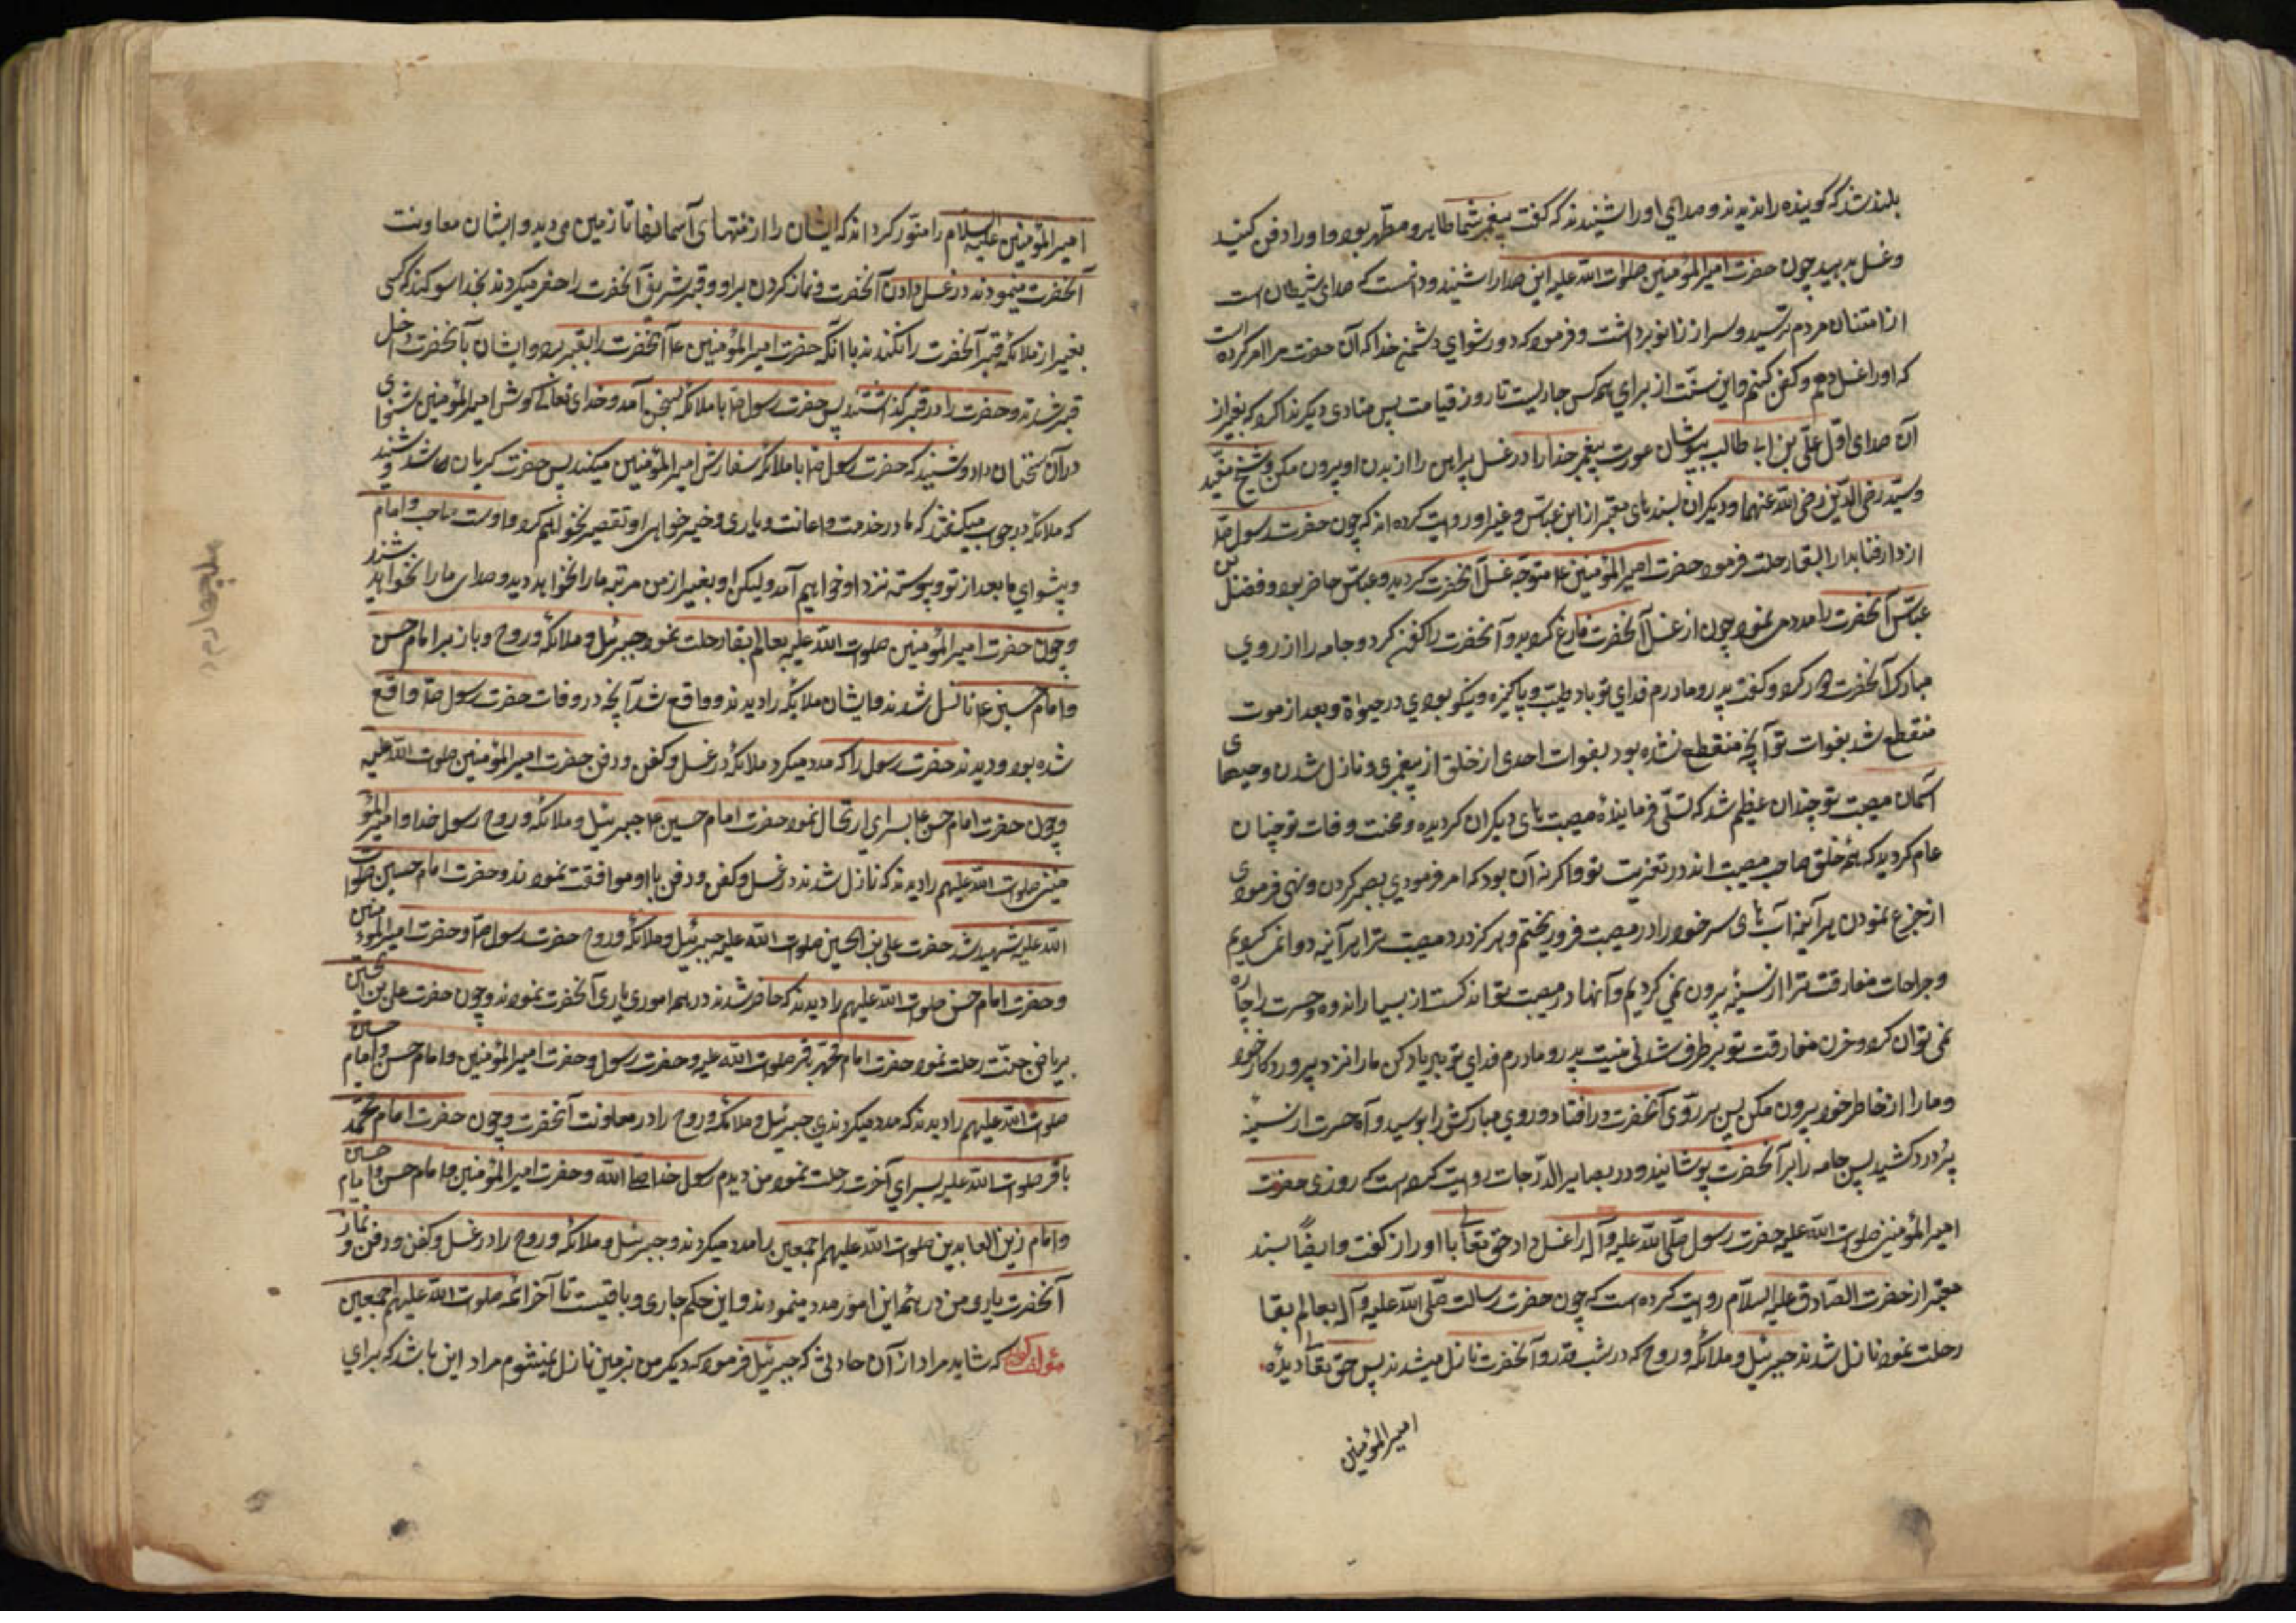 بلند شد که گوینده را ندیدند و صدای او را شنیدند که گفت پیغمبر شما طاهر و مطهّر بود او را دفن کنید
و غسل مدهید چون حضرت امیرالمؤمنین صلوات الله علیه این صدا را شنید و دانست که صدای شیطان است
از امتنان مردم ترسید و سر از زانو برداشت و فرمود که دور شو ای دشمن خدا که آن حضرت مرا امر کرده است
که او را غسل دهم و کفن کنم و این سنّت از برای همه کس جاریست تا روز قیامت پس منادی دیگر ندا کرد که بغیر از
آن صدای اوّل علی بن ابی طالب بپوشان عورت پیغمبر خدا را در غسل پیراهن را از بدن او بیرون مکن و شیخ مفید
و سیّد رضی الدّین رضی الله عنهما و دیگران بسندهای معتبر از ابن عبّاس و غیر او روایت کرده اند که چون حضرت رسول ص
از دار فنا بدار البقا رحلت فرمود حضرت امیرالمؤمنین ع متوجّه غسل آنحضرت گردید و عبّاس حاضر بود و فضل بن
عبّاس آنحضرت را مدد می نمود چون از غسل آنحضرت فارغ گردید و آنحضرت را کفن کرد و جامه را از روی
مبارک آنحضرت دور کرد و گفت پدر و مادرم فدای تو باد طیّب و پاکیزه و نیکو بودی در حیوة و بعد از موت
منقطع شد بفوات تو آنچه منقطع نشده بود بفوات احدی از خلق از پیغمبری و نازل شدن وحیهای
آسمان مصیبت تو چندان عظیم شد که تسلّی فرماینده مصیبت های دیگران گردیده و محنت وفات تو چنان
عام گردید که همه خلق صاحب مصیبت اند در تعزیت تو و اگر نه آن بود که امر فرمودی بصبر کردن و نهی فرمودی
از جزع نمودن هر آینه آب های سر خود را در مصیبت فرو ریختم و هرگز درد مصیبت ترا هر آینه دوا نمی کردیم
و جراحات مفارقت ترا از سینه بیرون نمی کردیم و آنها در مصیبت تو اندکست از بسیار اندوه و حسرت را چاره
نمی توان کرد و حزن مفارقت تو برطرف شدنی نیست پدر و مادرم فدای تو باد یاد کن ما را نزد پروردگار خود
و ما را از خاطر خود بیرون مکن پس بر روی آنحضرت در افتاد و روی مبارکش را بوسید و آه حسرت از سینه
پر درد کشید پس جامه را بر آنحضرت پوشانید و در بصایر الدّرجات روایت کرده است که روزی حضرت
امیرالمؤمنین صلوات الله علیه حضرت رسول صلّی الله علیه و آله را غسل داد حق تعالی با او راز گفت و ایضاً بسند
معتبر از حضرت الصّادق علیه السلام روایت کرده است که چون حضرت رسالت صلّی الله علیه و آله بعالم بقا
رحلت نمود نازل شدند جبرئیل و ملائکه و روح که در شب قدر و آنحضرت نازل میشدند پس حق تعالی دیده
امیرالمؤمنین
امیرالمؤمنین علیه السلام را منوّر کرد اند که ایشان را از منتهای آسمانها تا زمین می دید و ایشان معاونت
آنحضرت مینمودند در غسل دادن آنحضرت و نماز کردن بر او و قبر شریف آنحضرت را حفر میکردند بخدا سوگند که کسی
بغیر از ملائکه قبر آنحضرت را نکندند با آنکه حضرت امیرالمؤمنین ع آنحضرت را بقبر برد و ایشان با آنحضرت داخل
قبر شدند و حضرت را در قبر گذاشتند پس حضرت رسول ص با ملائکه بسخن آمد و خدای تعالی گوش امیرالمؤمنین شنوای
در آن سخنان داد و شنید که حضرت رسول ص با ملائکه سفارش امیرالمؤمنین میکند پس حضرت گریان شد و شنید
که ملائکه در جواب میگفتند که ما در خدمت و اعانت و یاری و خیر خواهی او تقصیر نخواهیم کرد و اوست صاحب و امام
و پیشوای ما بعد از تو و پیوسته نزد او خواهیم آمد و لیکن او بغیر از من مرتبه ما را نخواهد دید و صدای ما را نخواهد شنید
و چون حضرت امیرالمؤمنین صلوات الله علیه بعالم بقا رحلت نمود جبرئیل و ملائکه و روح و باز بر امام حسن
و امام حسین ع نازل شدند و ایشان ملایکه را دیدند و واقع شد آنچه در وفات حضرت رسول ص واقع
شده بود و دیدند حضرت رسول را که مدد میکرد ملائکه در غسل و کفن و دفن حضرت امیرالمؤمنین صلوات الله علیه
و چون حضرت امام حسن ع بسرای ارتحال نمود حضرت امام حسین ع جبرئیل و ملائکه و روح رسول خدا و امیرالمؤ
منین صلوات الله علیهم را دیدند که نازل شدند در غسل و کفن و دفن با او موافقت نمودند و حضرت امام حسین صلوات
الله علیه شهید شد حضرت علی بن الحسین صلوات الله علیه جبرئیل و ملائکه و روح حضرت رسول ص و حضرت امیرالمؤمنین
و حضرت امام حسن صلوات الله علیهم را دیدند که حاضر شدند در همه امور یاری آنحضرت نمودند و چون حضرت علی بن الحسین
بریاض جنّت رحلت نمود حضرت امام محمّد باقر صلوات الله علیه و حضرت رسول و حضرت امیرالمؤمنین و امام حسن و امام حسین
صلوات الله علیهم را دیدند که مدد میکردندی جبرئیل و ملائکه و روح را در معاونت آنحضرت و چون حضرت امام محمّد
باقر صلوات الله علیه بسرای آخرت رحلت نمود من دیدم رسول خدا صلی الله و حضرت امیرالمؤمنین و امام حسن و امام حسین
و امام زین العابدین صلوات الله علیهم اجمعین را مدد میکردند و جبرئیل و ملائکه و روح را در غسل و کفن و دفن و نماز
آنحضرت یاری من در همه این امور مدد مینمودند و این حکم جاری و باقیست تا آخر ائمه صلوات الله علیهم اجمعین
مؤلف گوید که شاید مراد از آن حادثی که جبرئیل فرمود که دیگر من بزمین نازل نمیشوم مراد این باشد که برای